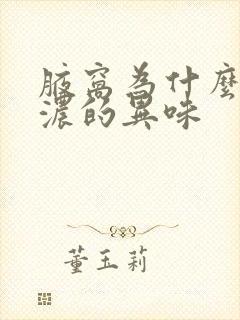 腋窩為什麼
濃的異味
董玉莉